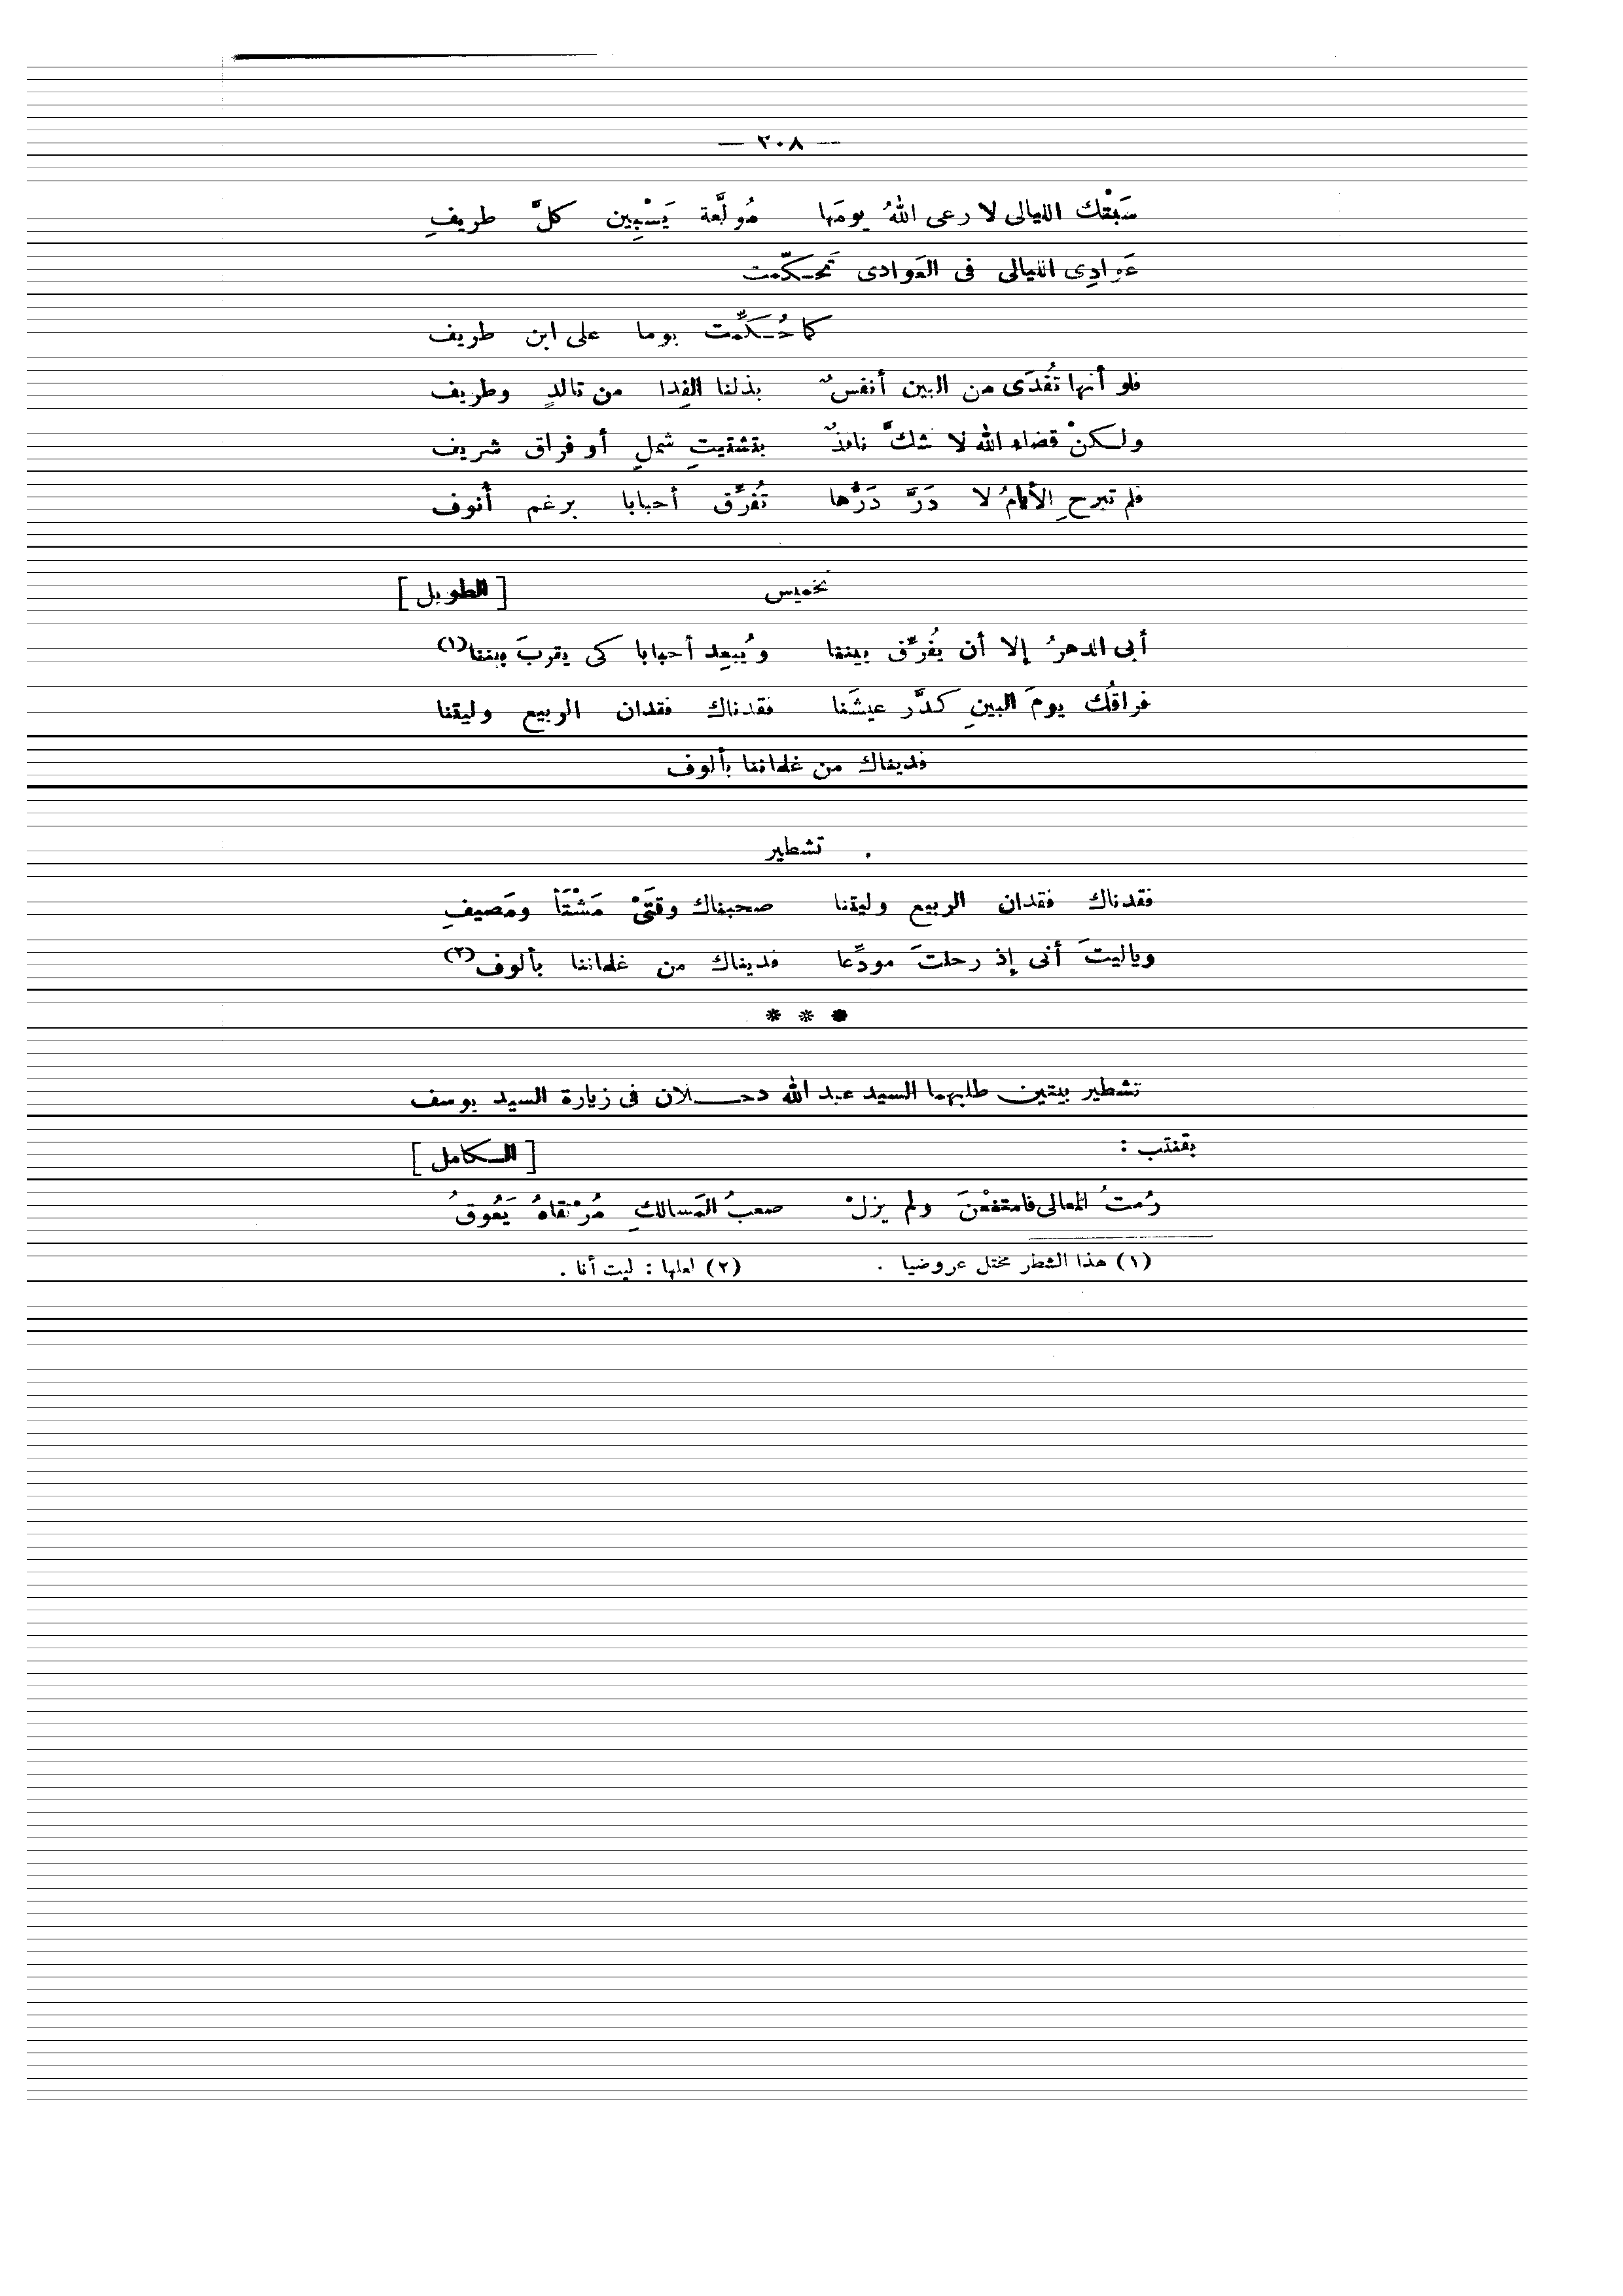 — ٣٠٨ —
سَبْتك الليالى لا رعى اللهُ يومَها مُولَّعة يَسْبِين كلَّ طريفِ
عَوادِى الليالى فى العَوادى تَحكّمت
كما حُكِّمت يوما على ابن طريف
فلو أنها تُفْدَى من البين أنفسٌ بذلنا الفِدا من تالدٍ وطريف
ولكنْ قضاء الله لا شكَّ نافذٌ بتشتيتِ شملٍ أو فراق شريف
فلم تبرحِ الأيامُ لا دَرَّ دَرُّها تُفرِّق أحبابا برغم أنوف
تخميس [ الطويل ]
أبى الدهرُ إلا أن يُفرِّق بيننا ويُبعِد أحبابا كى يقربَ بيننا(١)
فراقُك يومَ البينِ كدَّر عيشَنا فقدناك فقدان الربيع وليتنا
فديناك من غلماننا بألوف
تشطير
فقدناك فقدان الربيع وليتنا صحبناك وقتَىْ مَشْتَأ ومَصيفِ
وياليتَ أنى إذ رحلتَ مودِّعا فديناك من غلماننا بألوف(٢)
* * *
تشطير بيتين طلبهما السيد عبد الله دحلان فى زيارة السيد يوسف
بقنتب : [ الكامل ]
رُمتُ المعالى فامتنعْنَ ولم يزلْ صعبُ المَسالكِ مُرْتقاهُ يَعُوقُ
(١) هذا الشطر مختل عروضيا . (٢) لعلها : ليت أنا .